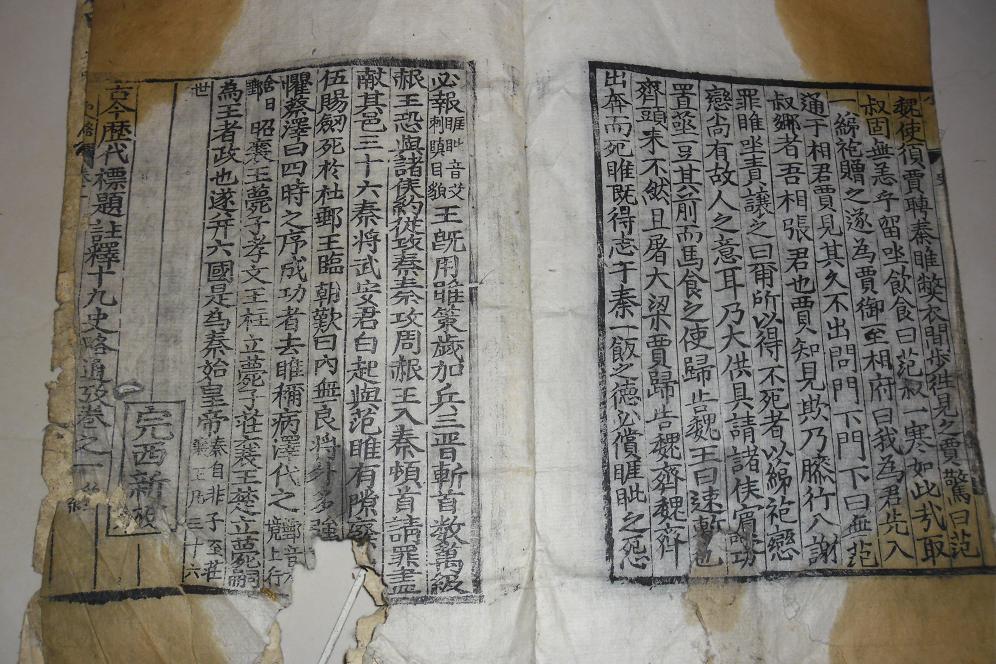 魏使須賈聘秦睢敝衣間步徃見之賈驚曰范
叔固無恙乎留坐飲食曰范叔一寒如此㦲取
一綈袍贈之遂為賈御至相府曰我為君先入
通于相君賈見其久不出問門下門下曰無范
叔鄕者吾相張君也賈知見欺乃膝行入謝
罪睢坐責讓之曰爾所以得不死者以綈袍戀
戀尚有故人之意耳乃大供具請諸侯賔
置莝豆其前而馬食之使歸告魏王曰速斬
齊頭来不然且屠大梁賈歸告魏齊魏齊
出奔而死睢既得志于秦一飯之德必償睚眦之怨
必報睚眦音艾刺瞋目貌王旣用睢策歲加兵三晋斬首数萬級
赧王恐與諸侯約從攻秦秦攻周赧王入秦頓首請罪盡
献其邑三十六秦將武安君白起與范睢有隙廢
伍賜劒死於杜郵王臨朝歎曰內無良將外多強
懼蔡澤曰四時之序成功者去睢稱病澤代之郵音
昭襄王薨子孝文王柱立薨子莊襄王楚立薨
為王者政也遂并六國是為秦始皇帝秦自非子至莊襄王凡三十六
世
古今歴代標題註釋十九史略通攷卷之一
完西新板